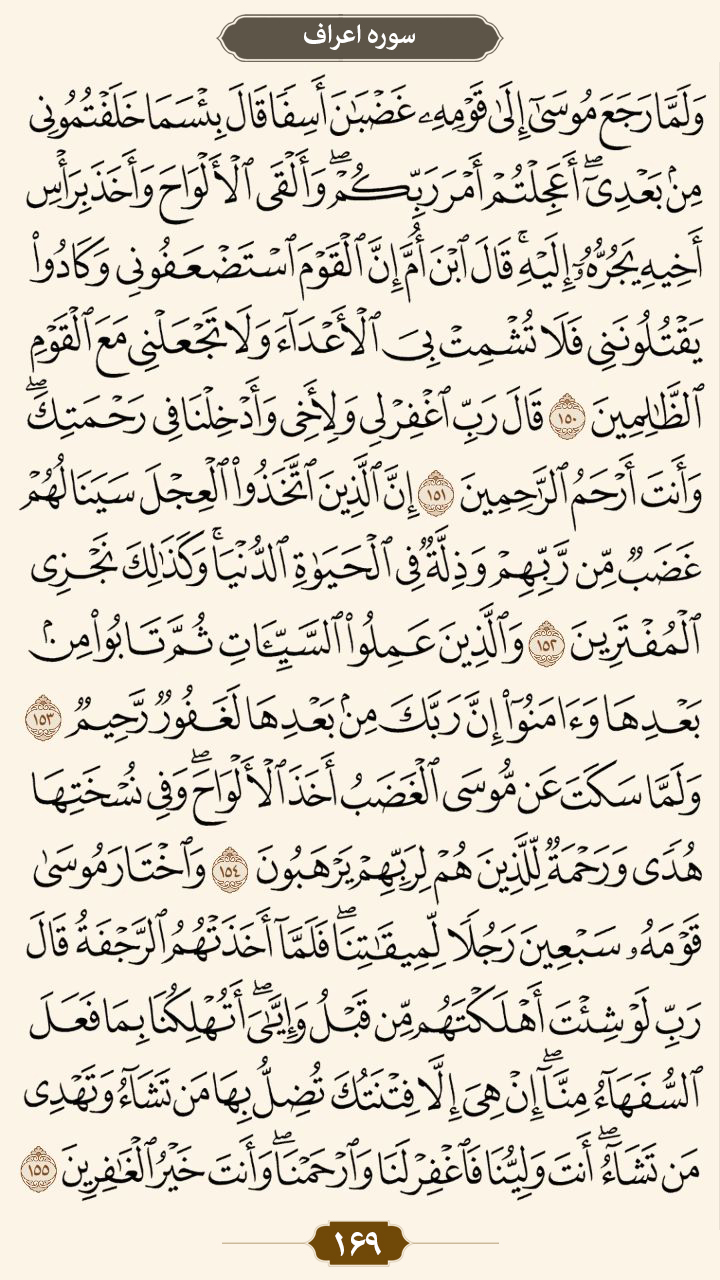 سوره اعراف
وَلَمَّا رَجَعَ مُوسَىٰٓ إِلَىٰ قَوْمِهِۦ غَضْبَٰنَ أَسِفٗا قَالَ بِئْسَمَا خَلَفْتُمُونِي
مِنۢ بَعْدِيٓۖ أَعَجِلْتُمْ أَمْرَ رَبِّكُمْۖ وَأَلْقَى ٱلْأَلْوَاحَ وَأَخَذَ بِرَأْسِ
أَخِيهِ يَجُرُّهُۥٓ إِلَيْهِۚ قَالَ ٱبْنَ أُمَّ إِنَّ ٱلْقَوْمَ ٱسْتَضْعَفُونِي وَكَادُواْ
يَقْتُلُونَنِي فَلَا تُشْمِتْ بِيَ ٱلْأَعْدَآءَ وَلَا تَجْعَلْنِي مَعَ ٱلْقَوْمِ
ٱلظَّٰلِمِينَ ١٥٠ قَالَ رَبِّ ٱغْفِرْ لِي وَلِأَخِي وَأَدْخِلْنَا فِي رَحْمَتِكَۖ
وَأَنتَ أَرْحَمُ ٱلرَّٰحِمِينَ ١٥١ إِنَّ ٱلَّذِينَ ٱتَّخَذُواْ ٱلْعِجْلَ سَيَنَالُهُمْ
غَضَبٞ مِّن رَّبِّهِمْ وَذِلَّةٞ فِي ٱلْحَيَوٰةِ ٱلدُّنْيَاۚ وَكَذَٰلِكَ نَجْزِي
ٱلْمُفْتَرِينَ ١٥٢ وَٱلَّذِينَ عَمِلُواْ ٱلسَّيِّـَٔاتِ ثُمَّ تَابُواْ مِنۢ
بَعْدِهَا وَءَامَنُوٓاْ إِنَّ رَبَّكَ مِنۢ بَعْدِهَا لَغَفُورٞ رَّحِيمٞ ١٥٣
وَلَمَّا سَكَتَ عَن مُّوسَى ٱلْغَضَبُ أَخَذَ ٱلْأَلْوَاحَۖ وَفِي نُسْخَتِهَا
هُدٗى وَرَحْمَةٞ لِّلَّذِينَ هُمْ لِرَبِّهِمْ يَرْهَبُونَ ١٥٤ وَٱخْتَارَ مُوسَىٰ
قَوْمَهُۥ سَبْعِينَ رَجُلٗا لِّمِيقَٰتِنَاۖ فَلَمَّآ أَخَذَتْهُمُ ٱلرَّجْفَةُ قَالَ
رَبِّ لَوْ شِئْتَ أَهْلَكْتَهُم مِّن قَبْلُ وَإِيَّٰيَۖ أَتُهْلِكُنَا بِمَا فَعَلَ
ٱلسُّفَهَآءُ مِنَّآۖ إِنْ هِيَ إِلَّا فِتْنَتُكَ تُضِلُّ بِهَا مَن تَشَآءُ وَتَهْدِي
مَن تَشَآءُۖ أَنتَ وَلِيُّنَا فَٱغْفِرْ لَنَا وَٱرْحَمْنَاۖ وَأَنتَ خَيْرُ ٱلْغَٰفِرِينَ ١٥٥
۱۶۹